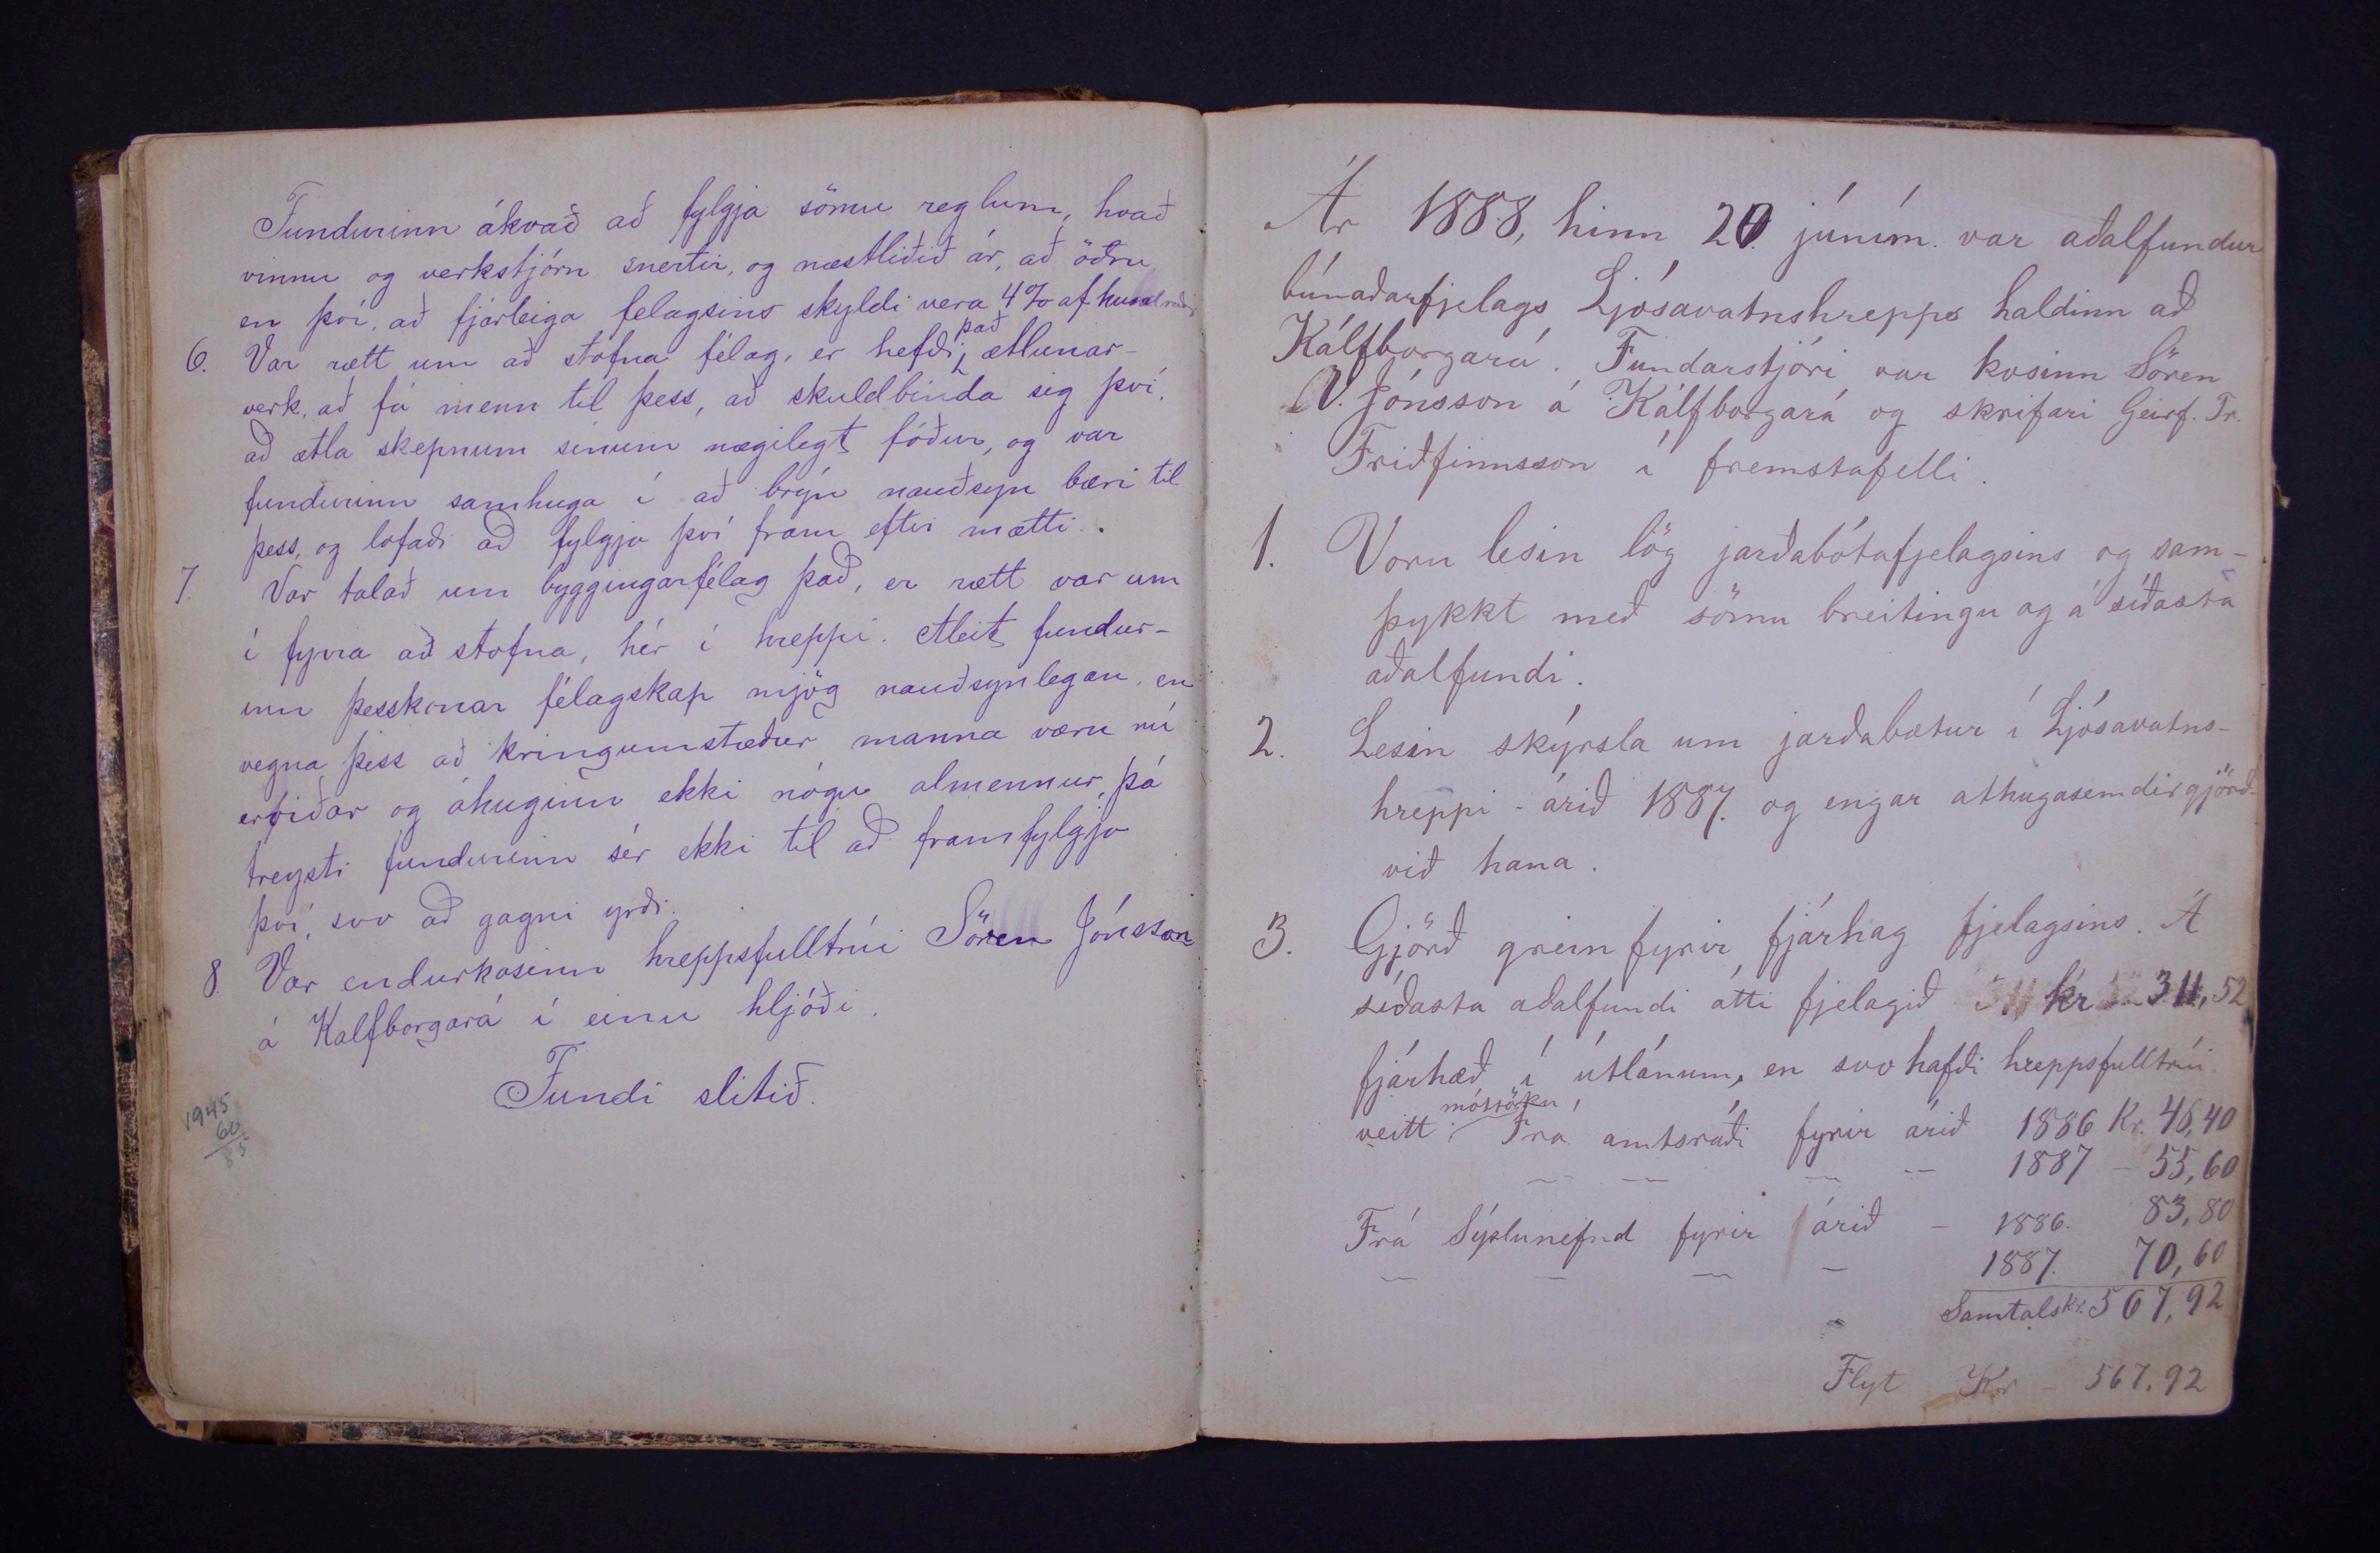 Fundurinn ákvað að fylgja sömu reglum, hvað
vinnu og verkstjórn snertir, og næstliðið ár, að öðru
en því, að fjárleiga félagsins skyldi vera 4% af hundraði
6. Var rætt um að stofna félag, er hefði það ætlunar-
verk, að fá menn til þess, að skuldbinda sig því,
að ætla skepnum sínum nægilegt fóður, og var
fundurinn samhuga í að brýn nauðsyn bæri til
þess, og lofaði að fylgja því fram eftir mætti.
7. Var talað um byggingarfélag það, er rætt var um
í fyrra að stofna, hér í hreppi. Áleit fundur-
inn þesskonar félagskap mjög nauðsynlegan, en
vegna þess að kringumstæður manna væru nú
erfiðar og áhuginn ekki nógu almennur, þá
treysti fundurinn sér ekki til að framfylgja
því, svo að gagni yrði.
8. Var endurkosinn hreppsfulltrúi Sören Jónsson
á Kalfborgará í einu hljóði.
Fundi slitið.
1945
60
85
Ár 1888, hinn 20. júním. var aðalfundur
búnaðarfjelags Ljósavatnshrepps haldinn að
Kálfborgará. Fundarstjóri var kosinn Sören
V. Jónsson á Kálfborgará og skrifari Geirf. Tr.
Friðfinnsson í fremstafelli.
1. Voru lesin lög jarðabótafjelagsins og sam-
þykkt með sömu breitingu og á síðasta
aðalfundi.
2. Lesin skýrsla um jarðabætur í Ljósavatns-
hreppi - árið 1887. og engar athugasemdir gjörð-
við hana.
3. Gjörð grein fyrir fjárhag fjelagsins. Á
síðasta aðalfundi átti fjelagið kr 311,52
fjárhæð í útlánum, en svo hafði hreppsfulltrúi
veitt móttöku, Frá amtsráði fyrir árið 1886 Kr. 46,40
— — — — 1887 - 55,60
Frá Sýslunefnd fyrir árið - 1886. 83,80
— — — — 1887. 70,60
Samtals kr. 567,92
Flyt Kr - 567.92